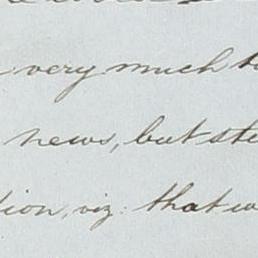 very much to
news, but ste
tion, viz: that w